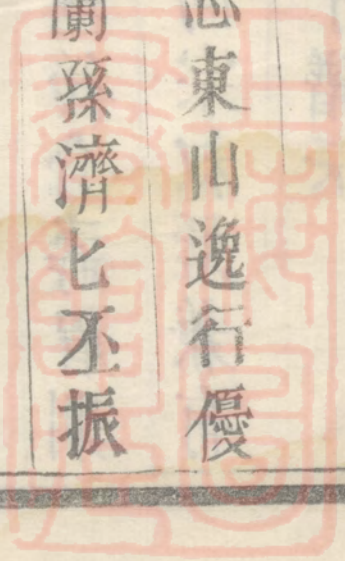 東山逸行優
蘭孫濟匕丕振